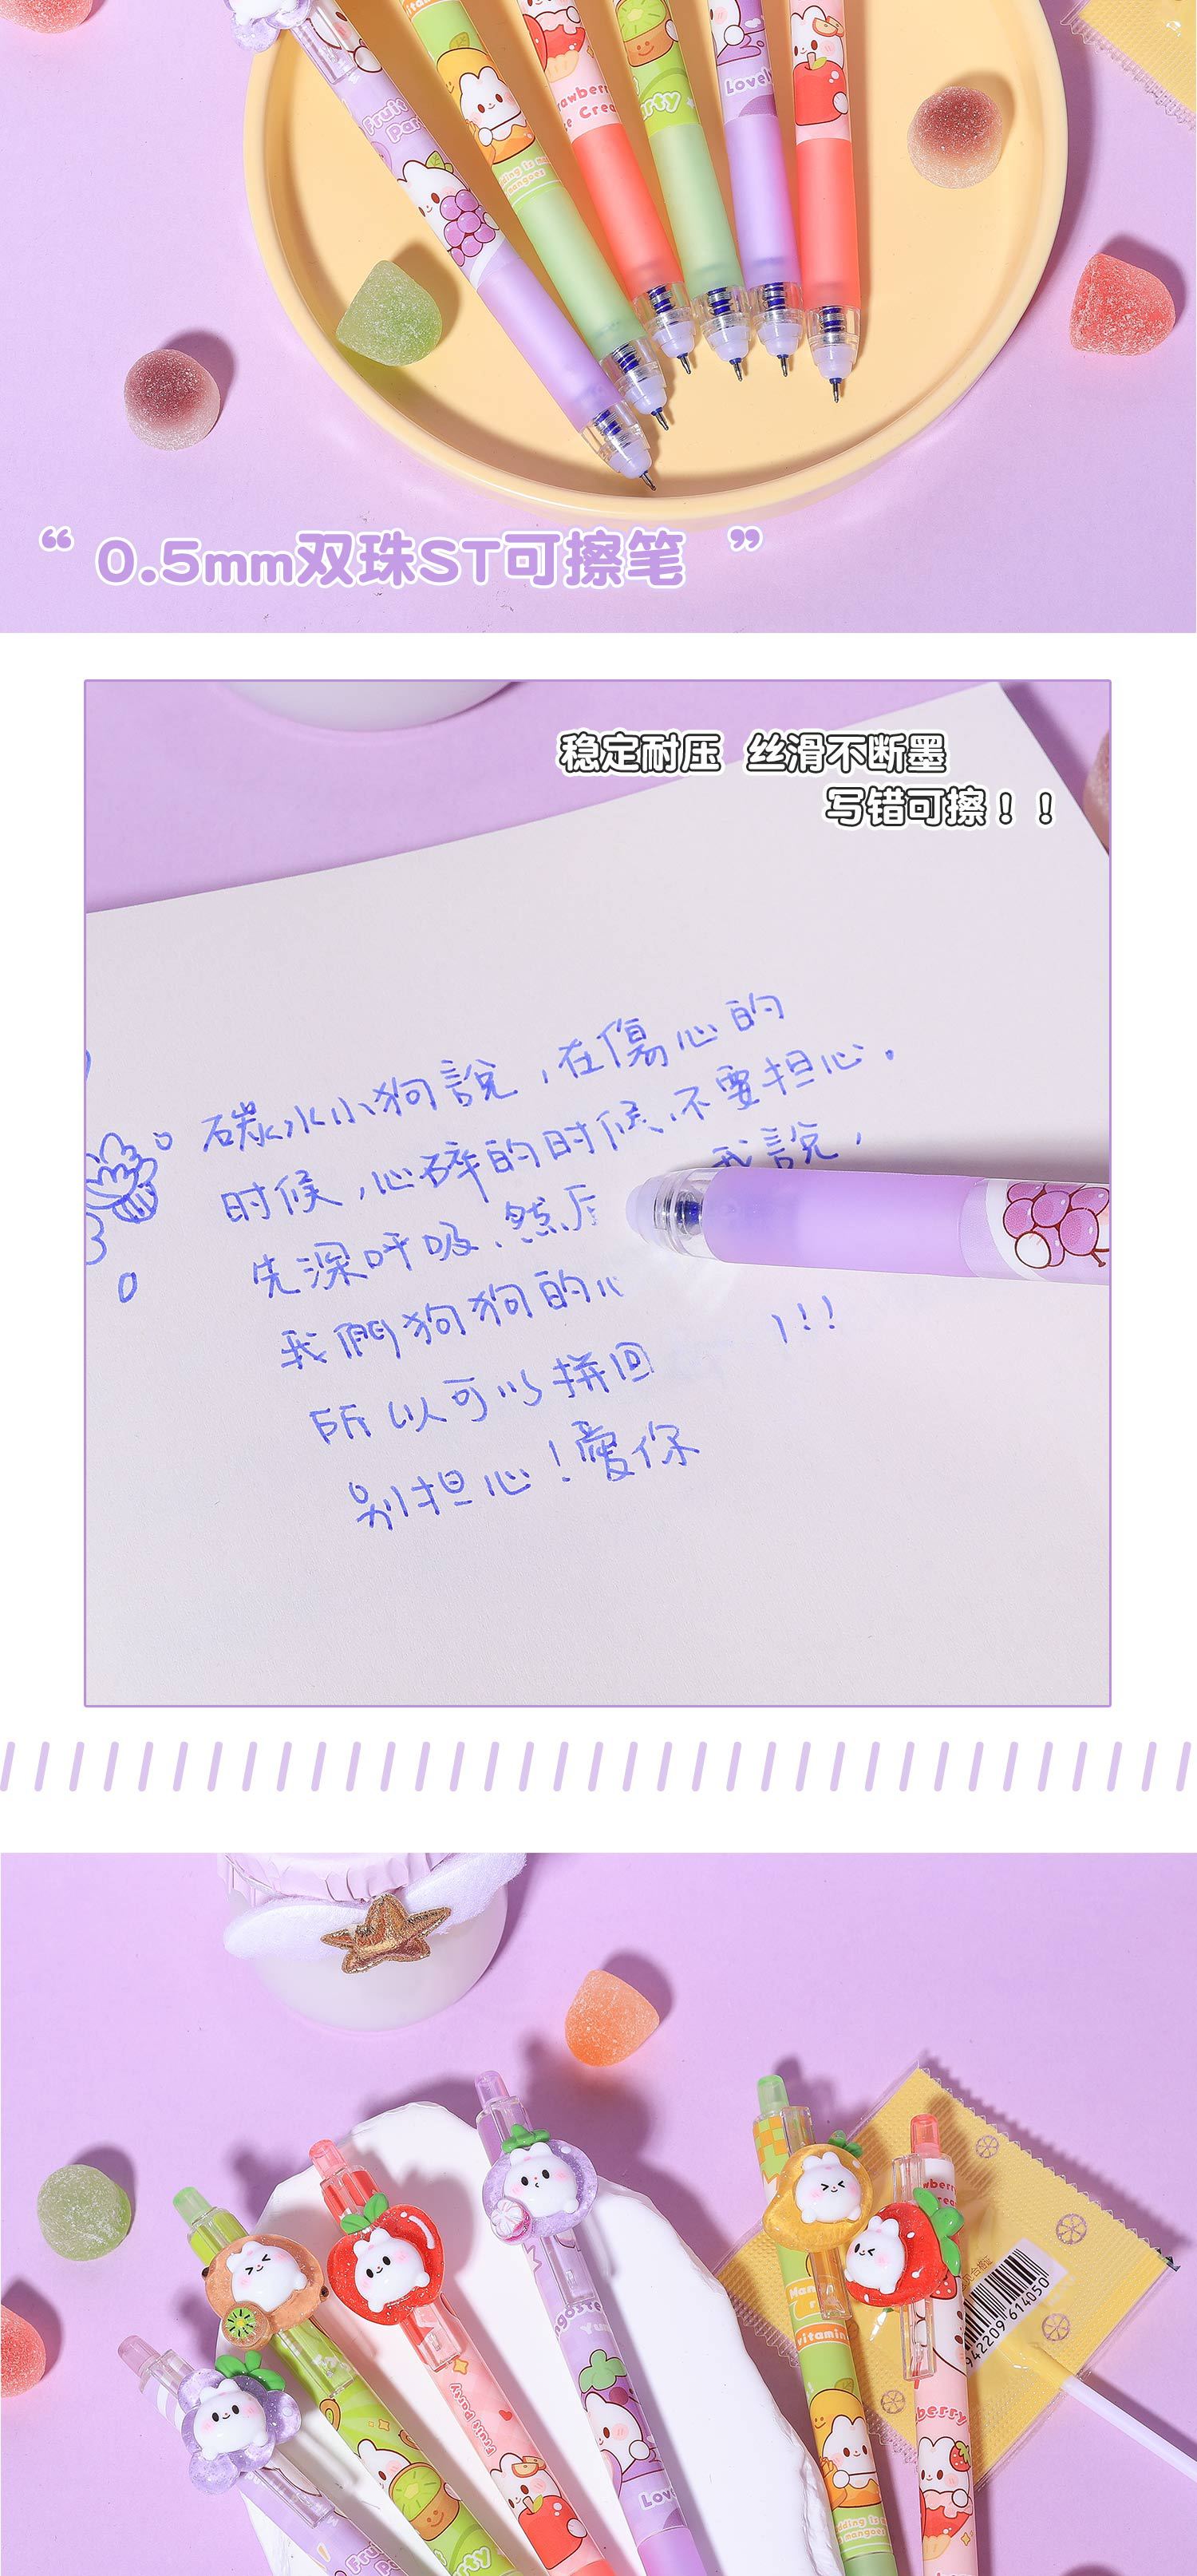 Fruit
Par
Lovel
rawberr
e Crea
arty
dding is m
mangoes
“0.5mm双珠ST可擦笔”
稳定耐压 丝滑不断墨
写错可擦！！
碳水小狗說，在傷心的
时候，心碎的时候、不要担心。
先深呼吸、然后 我說，
我們狗狗的心
所以可以拼回 ！！
别担心！愛你
Man
vitamin
berry
Fruit party
ngoste
Yu
Lov
dding is m
mangoes
Fruit
Pa
rty
942209 614050